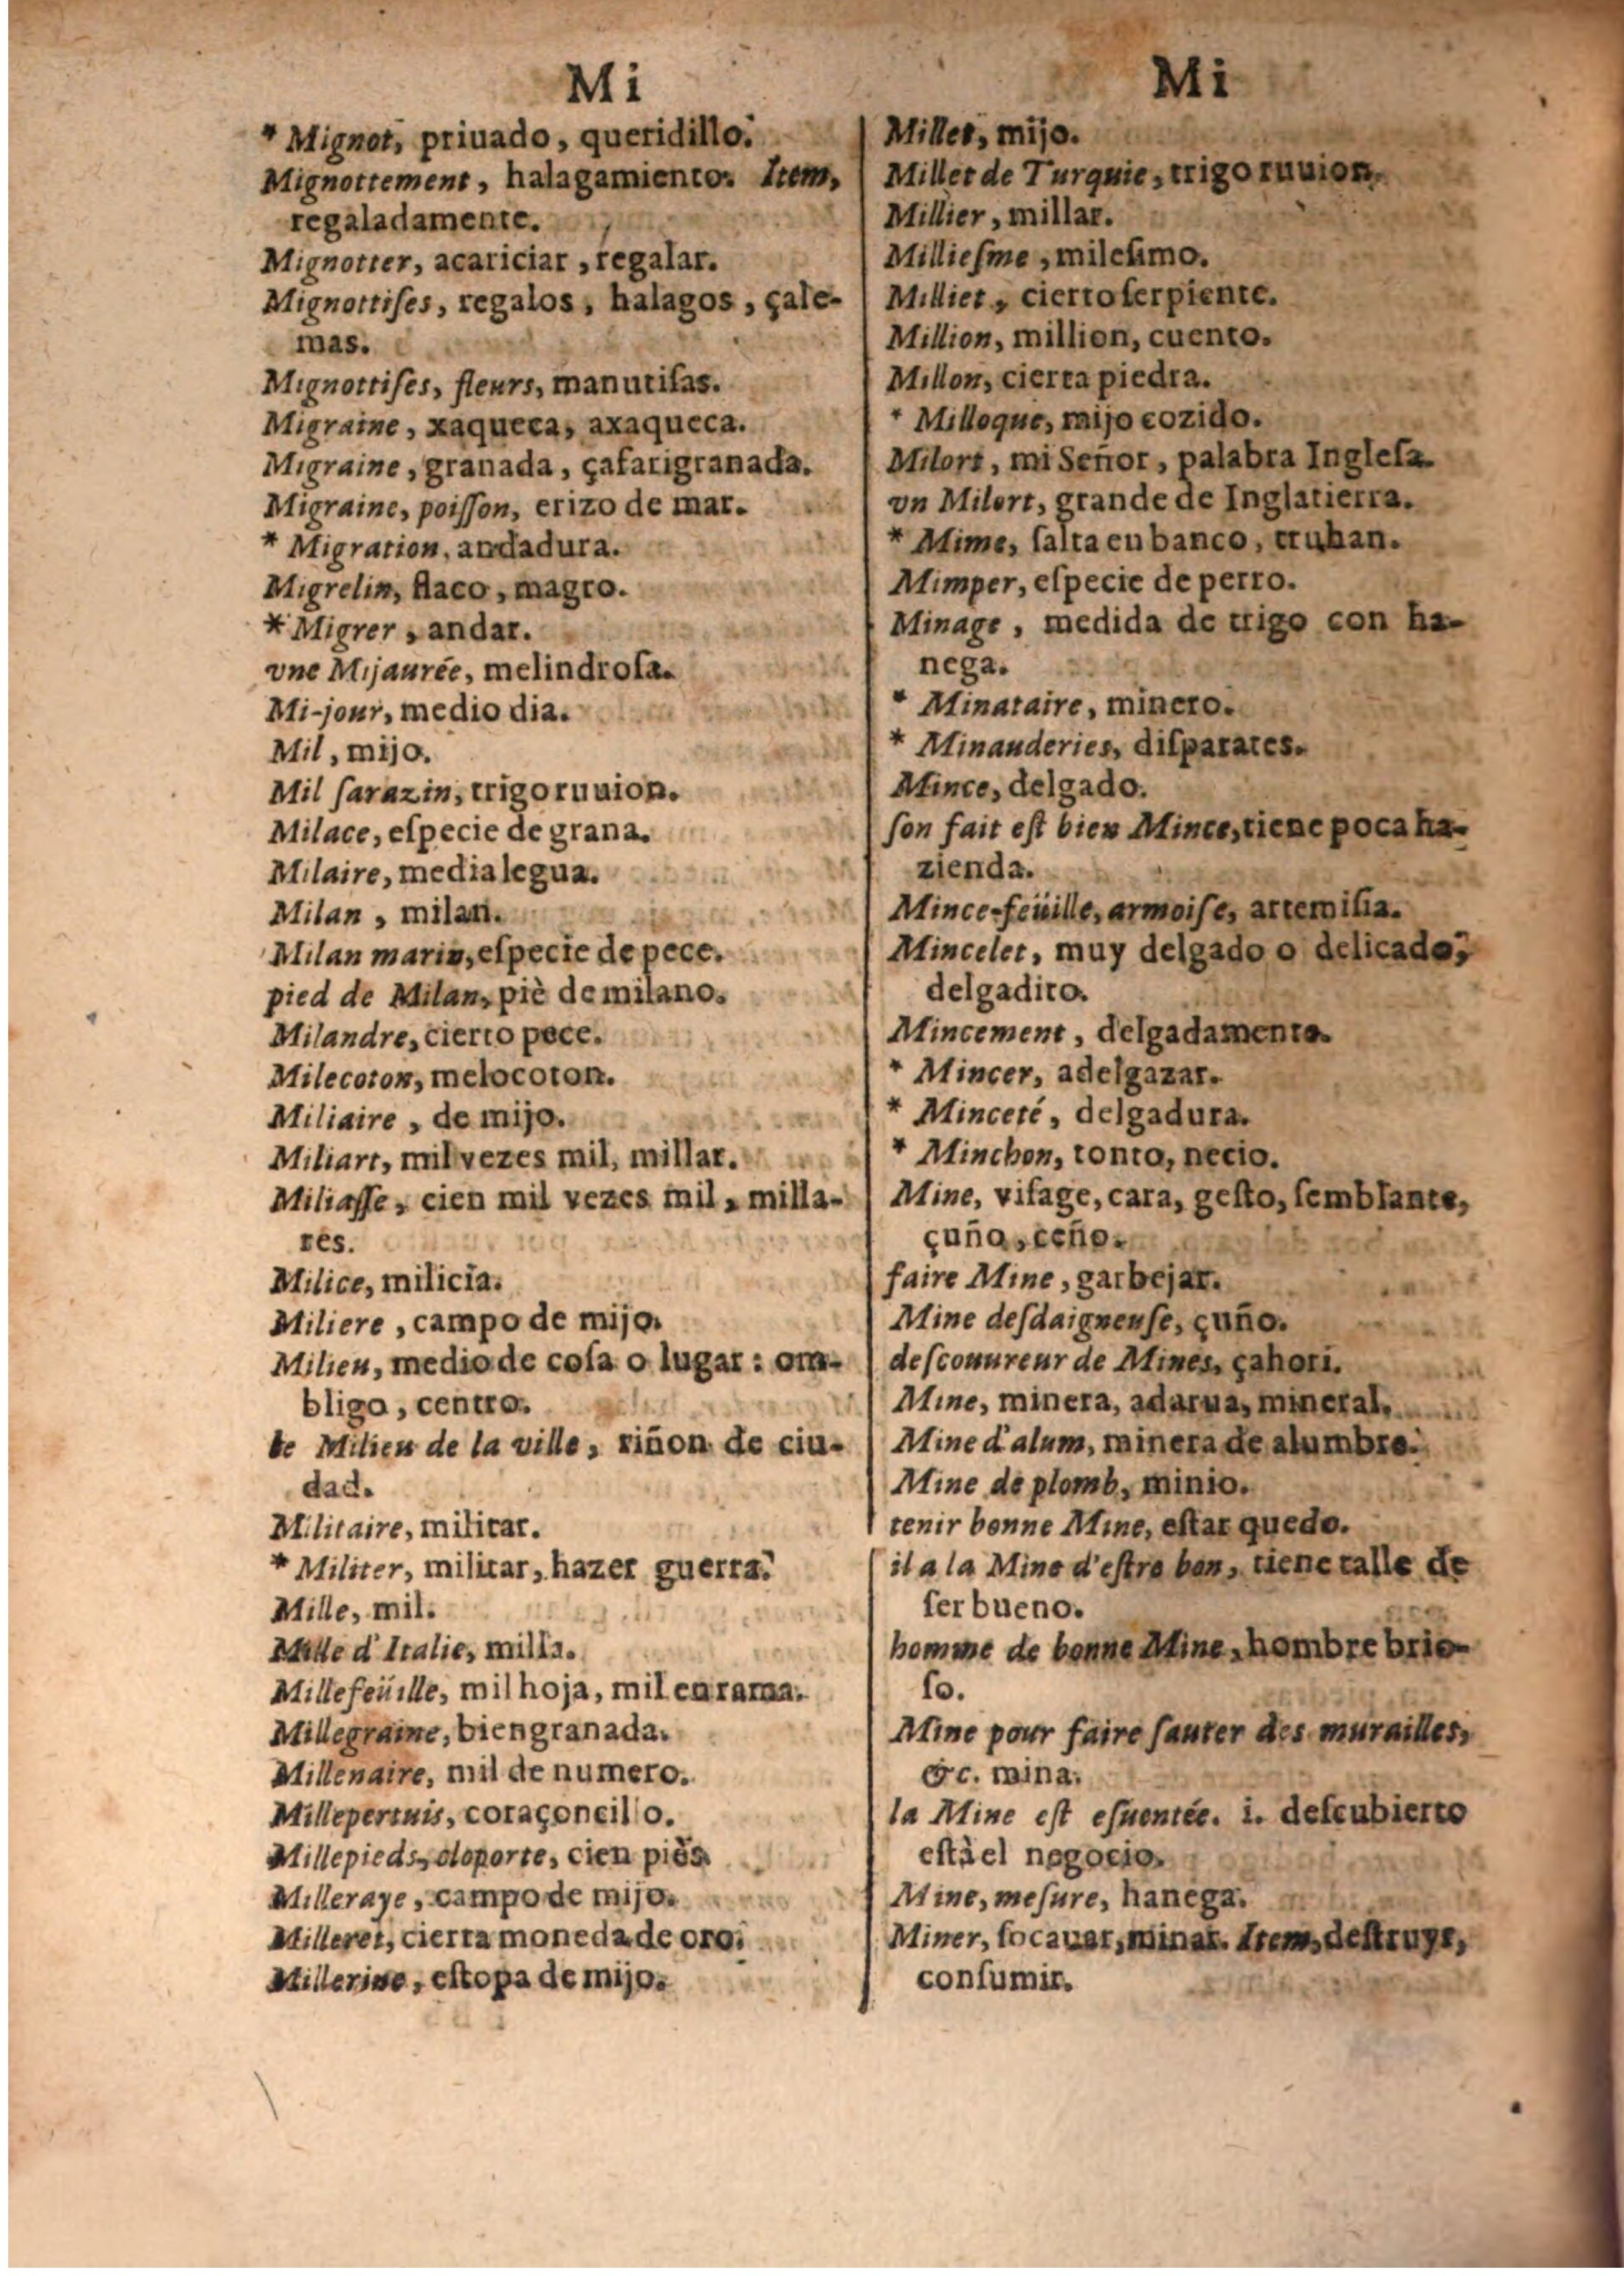 Mi
* Mignot, priuado, queridillo.
Mignottement, halagamiento. Item,
regaladamente.
Mignotter, acariciar, regalar.
Mignottiſes, regalos, halagos, çale-
mas.
Mignottiſes, fleurs, manutiſas.
Migraine, xaqueca, axaqueca.
Migraine, granada, çafarigranada.
Migraine, poiſſon, erizo de mar.
* Migration, andadura.
Migrelin, flaco, magro.
* Migrer, andar.
vne Mijaurée, melindroſa.
Mi-jour, medio dia.
Mil, mijo.
Mil ſarazin, trigo ruuion.
Milace, eſpecie de grana.
Milaire, media legua.
Milan, milan.
Milan marin, eſpecie de pece.
pied de Milan, piè de milano.
Milandre, cierto pece.
Milecoton, melocoton.
Miliaire, de mijo.
Miliart, mil vezes mil, millar.
Miliaſſe, cien mil vezes mil, milla-
res.
Milice, milicia.
Miliere, campo de mijo.
Milieu, medio de coſa o lugar: om-
bligo, centro.
le Milieu de la ville, riñon de ciu-
dad.
Militaire, militar.
* Militer, militar, hazer guerra.
Mille, mil.
Mille d'Italie, milla.
Millefeüille, milhoja, mil en rama.
Millegraine, biengranada.
Millenaire, mil de numero.
Millepertuis, coraçoncillo.
Millepieds, cloporte, cien piès.
Milleraye, campo de mijo.
Milleret, cierta moneda de oro.
Millerine, eſtopa de mijo.
Mi
Millet, mijo.
Millet de Turquie, trigo ruuion.
Millier, millar.
Millieſme, mileſimo.
Milliet, cierto ſerpiente.
Million, million, cuento.
Millon, cierta piedra.
* Milloque, mijo cozido.
Milort, mi Señor, palabra Ingleſa.
vn Milort, grande de Inglatierra.
* Mime, ſalta en banco, truhan.
Mimper, eſpecie de perro.
Minage, medida de trigo con ha-
nega.
* Minataire, minero.
* Minauderies, diſparates.
Mince, delgado.
ſon fait eſt bien Mince, tiene poca ha-
zienda.
Mince-feüille, armoiſe, artemiſia.
Mincelet, muy delgado o delicado,
delgadito.
Mincement, delgadamente.
* Mincer, adelgazar.
* Minceté, delgadura.
* Minchon, tonto, necio.
Mine, viſage, cara, geſto, ſemblante,
çuño, ceño.
faire Mine, garbejar.
Mine deſdaigneuſe, çuño.
deſcouureur de Mines, çahori.
Mine, minera, adarua, mineral.
Mine d'alum, minera de alumbre.
Mine de plomb, minio.
tenir bonne Mine, eſtar quedo.
il a la Mine d'eſtre bon, tiene talle de
ſer bueno.
homme de bonne Mine, hombre brio-
ſo.
Mine pour faire ſauter des murailles,
&c. mina.
la Mine eſt eſuentée. i. deſcubierto
eſtà el negocio.
Mine, meſure, hanega.
Miner, ſocauar, minar. Item, deſtruyr,
conſumir.